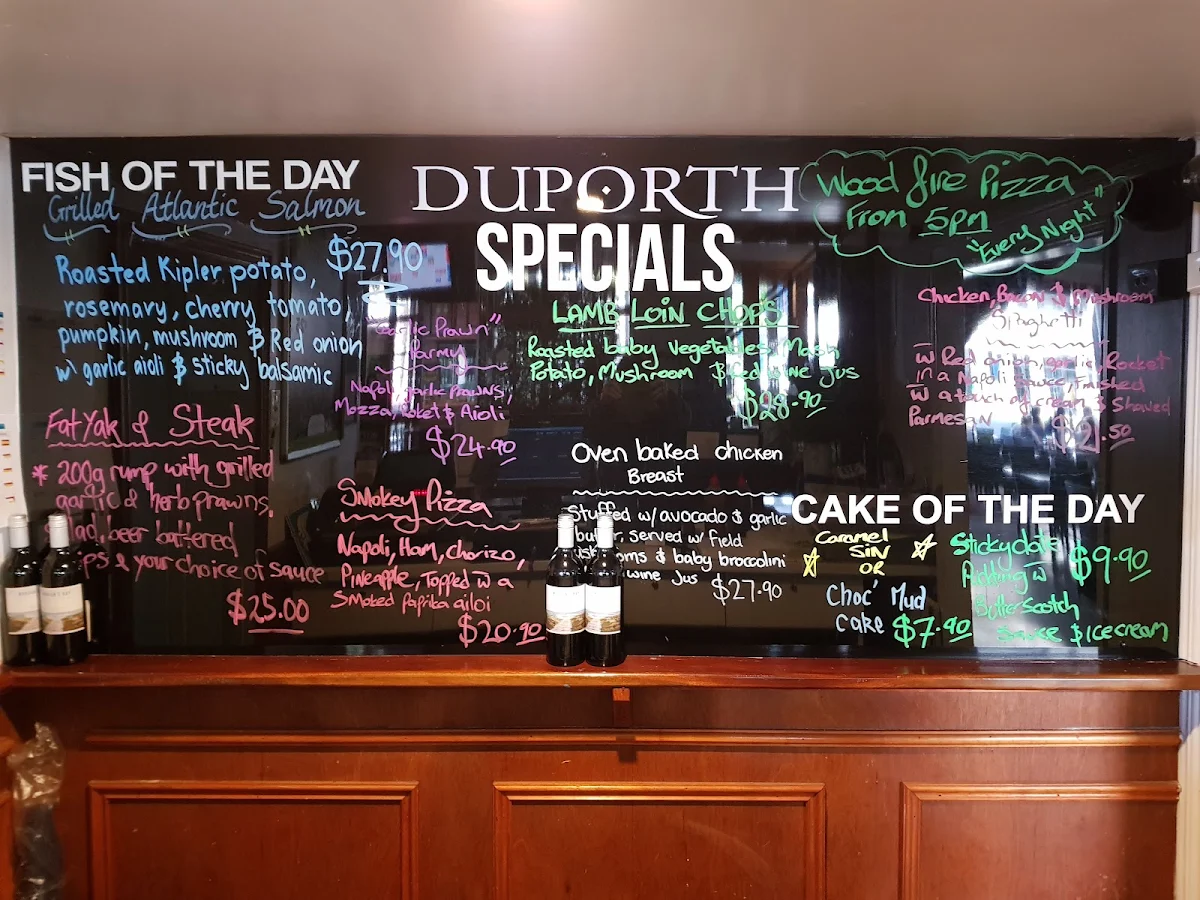 FISH OF THE DAY
Grilled Atlantic Salmon
$27.90
Roasted Kipler potato,
rosemary, cherry tomato,
pumpkin, mushroom & Red onion
w/ garlic aioli & sticky balsamic
Fat Yak & Steak
* 200g rump with grilled
garlic & herb prawns,
beer battered
& your choice of sauce
$25.00
"Garlic Prawn"
Parmy
Napoli, garlic prawns,
Mozza, & Aioli
$24.90
Smokey Pizza
Napoli, Ham, Chorizo,
Pineapple, Topped w a
Smoked Paprika ailoi
$20.90
DUPORTH
SPECIALS
LAMB LOIN CHOPS
Roasted baby Vegetables, Mash
Potato, Mushroom & red wine jus
$28.90
Oven baked chicken
Breast
Stuffed w/ avocado & garlic
served w/ field
& baby broccolini
wine jus $27.90
Wood fire Pizza
From 5pm
"Every Night"
Chicken, Bacon & Mushroom
Spaghetti
w Red onion, garlic, Rocket
in a Napoli sauce, finished
w a touch of cream & Shaved
Parmesan
CAKE OF THE DAY
Caramel
SIN
OR
Choc' Mud
Cake $7.90
Sticky date
Pudding w $9.90
Butterscotch
Sauce & icecream